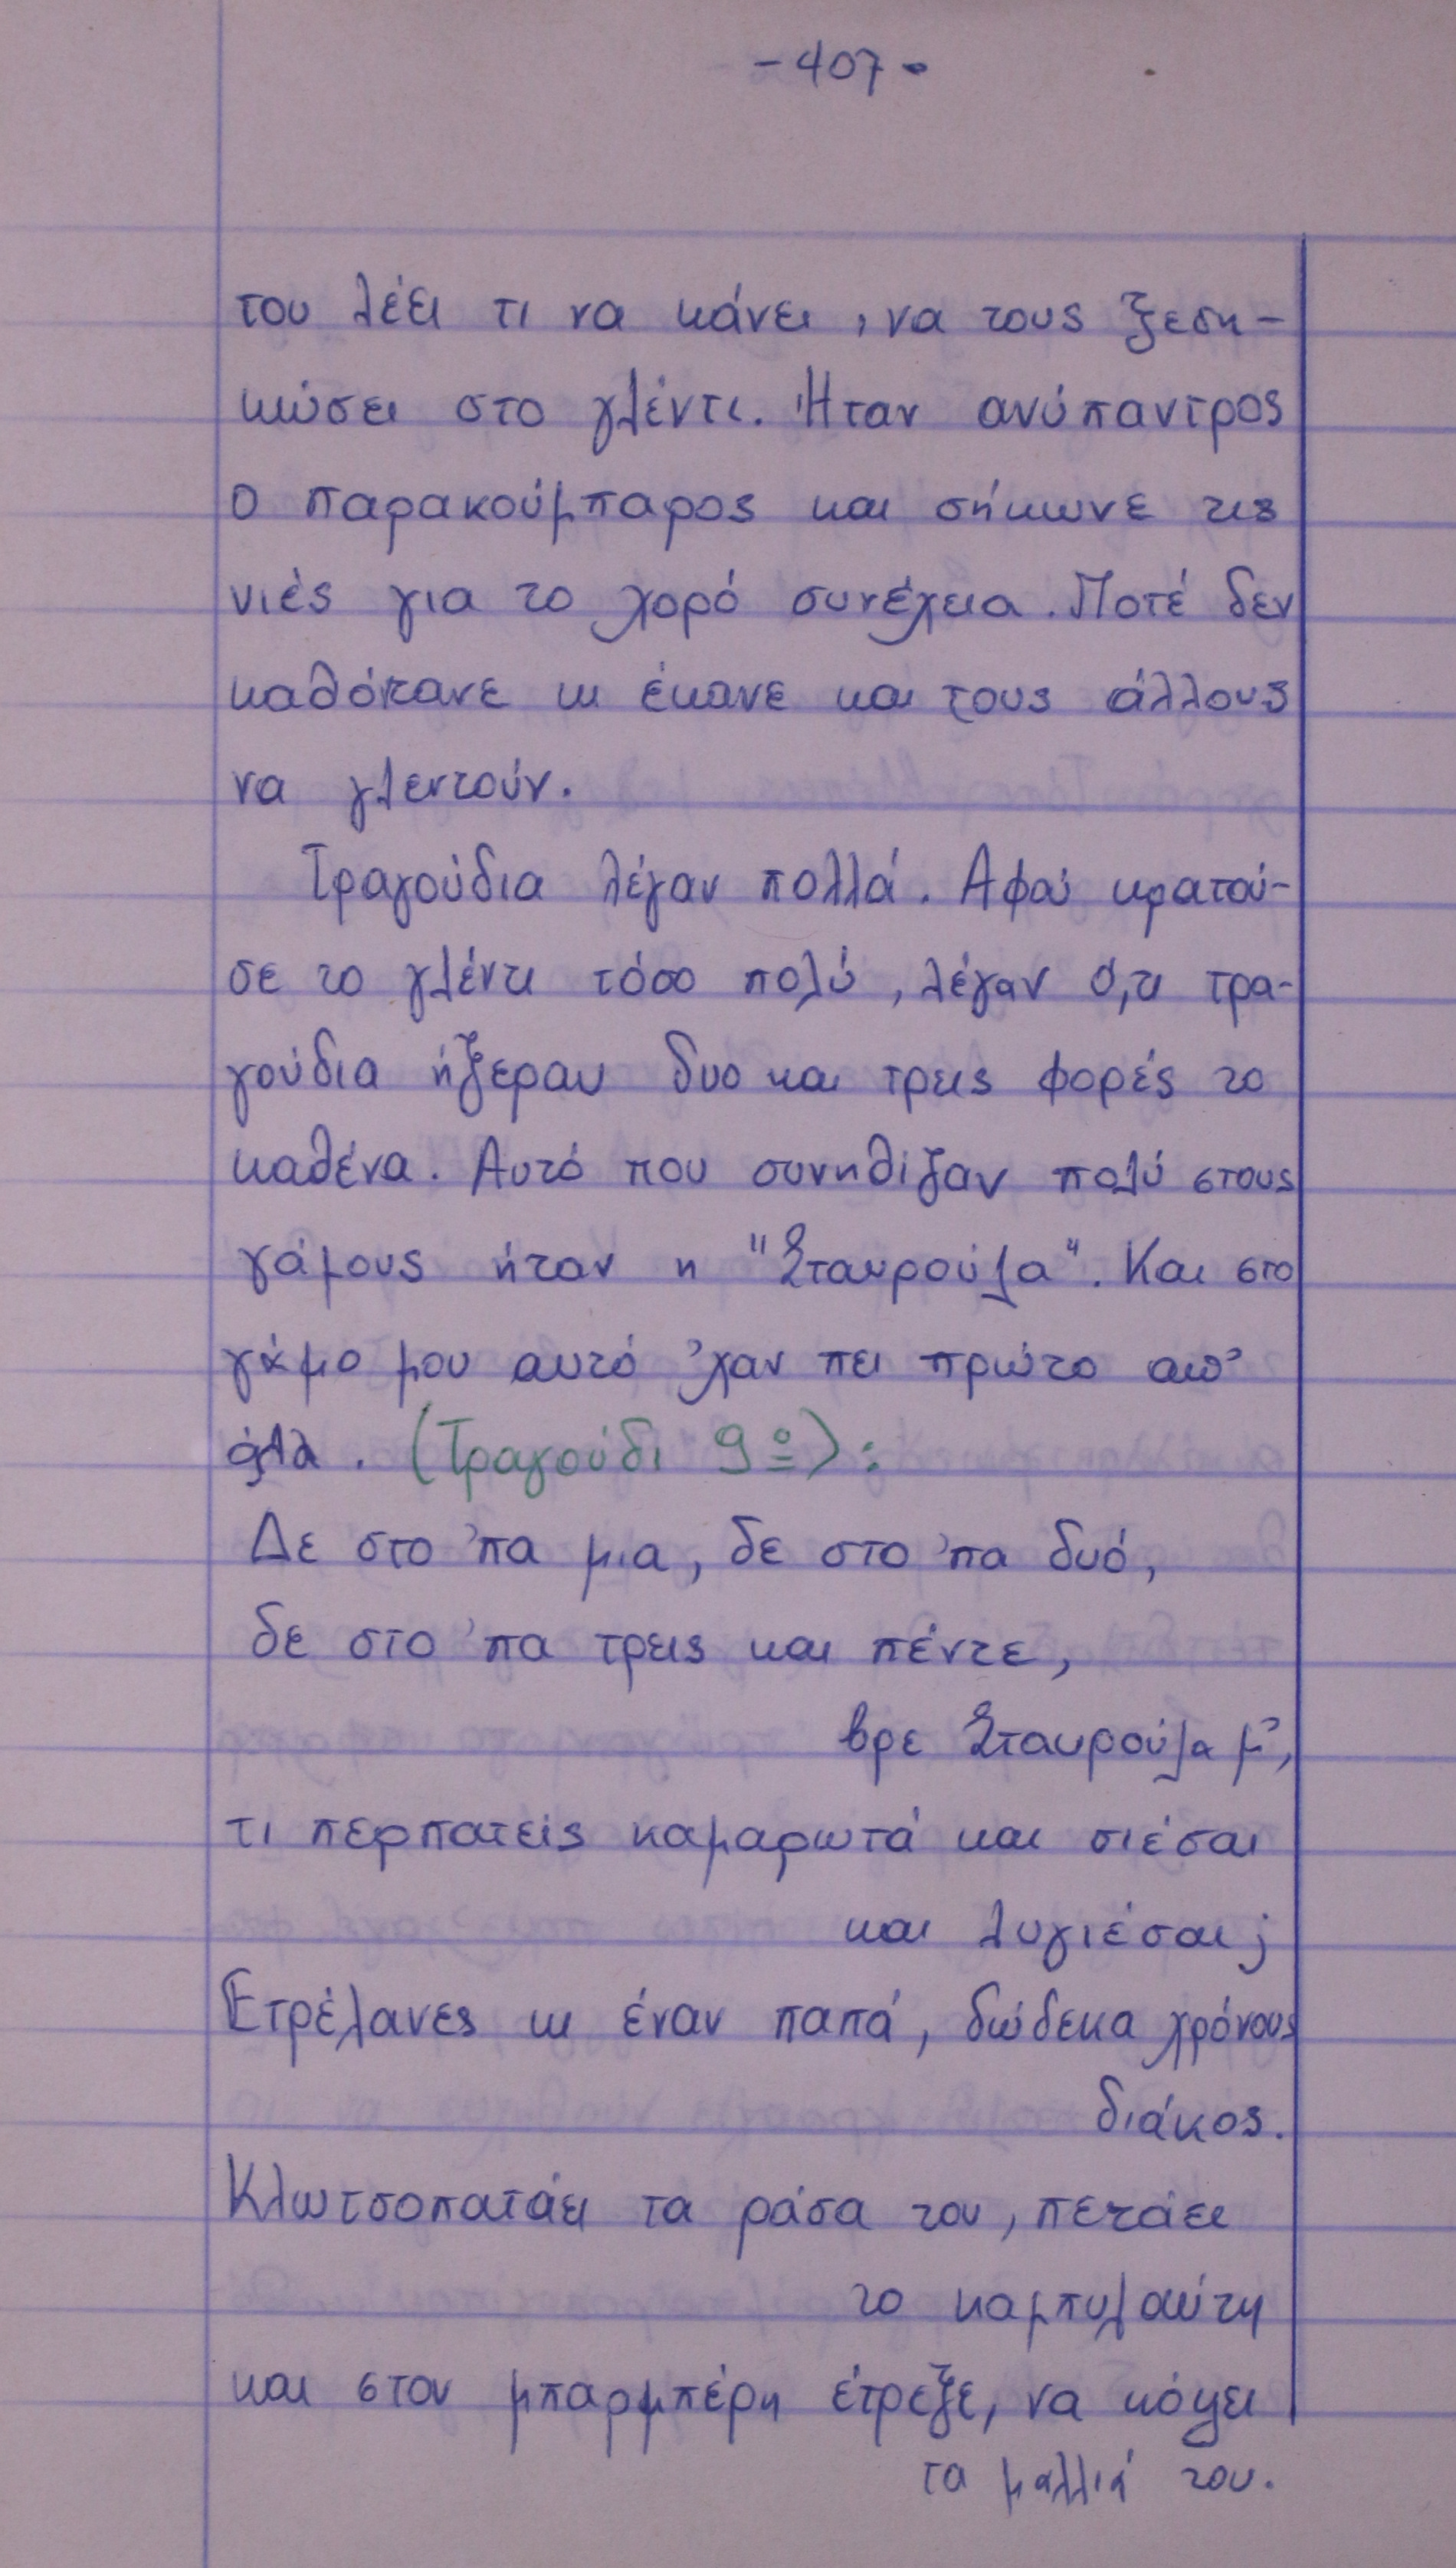 - 407 -
του λέει τι να κάνει, να τους ξεση-
κώσει στο γλέντι. Ήταν ανύπαντρος
ο παρακούμπαρος και σήκωνε τις
νιές για το χορό συνέχεια. Ποτέ δεν
καθότανε κι έκανε και τους άλλους
να γλεντούν.
Τραγούδια λέγαν πολλά. Αφού κρατού-
σε το γλέντι τόσο πολύ, λέγαν ό,τι τρα-
γούδια ήξεραν δυο και τρεις φορές το
καθένα. Αυτό που συνηθίζαν πολύ στους
γάμους ήταν η "Σταυρούλα". Και στο
γάμο μου αυτό 'χαν πει πρώτο απ'
όλα. (Τραγούδι 9º):
Δε στο 'πα μια, δε στο 'πα δυό,
δε στο 'πα τρεις και πέντε,
βρε Σταυρούλα μ',
τι περπατείς καμαρωτά και σιέσαι
και λυγιέσαι;
Ετρέλανες κι έναν παπά, δώδεκα χρόνους
διάκος.
Κλωτσοπατάει τα ράσα του, πετάει
το καμπυλαύτη
και στον μπαρμπέρη έτρεξε, να κόψει
τα μαλλιά του.